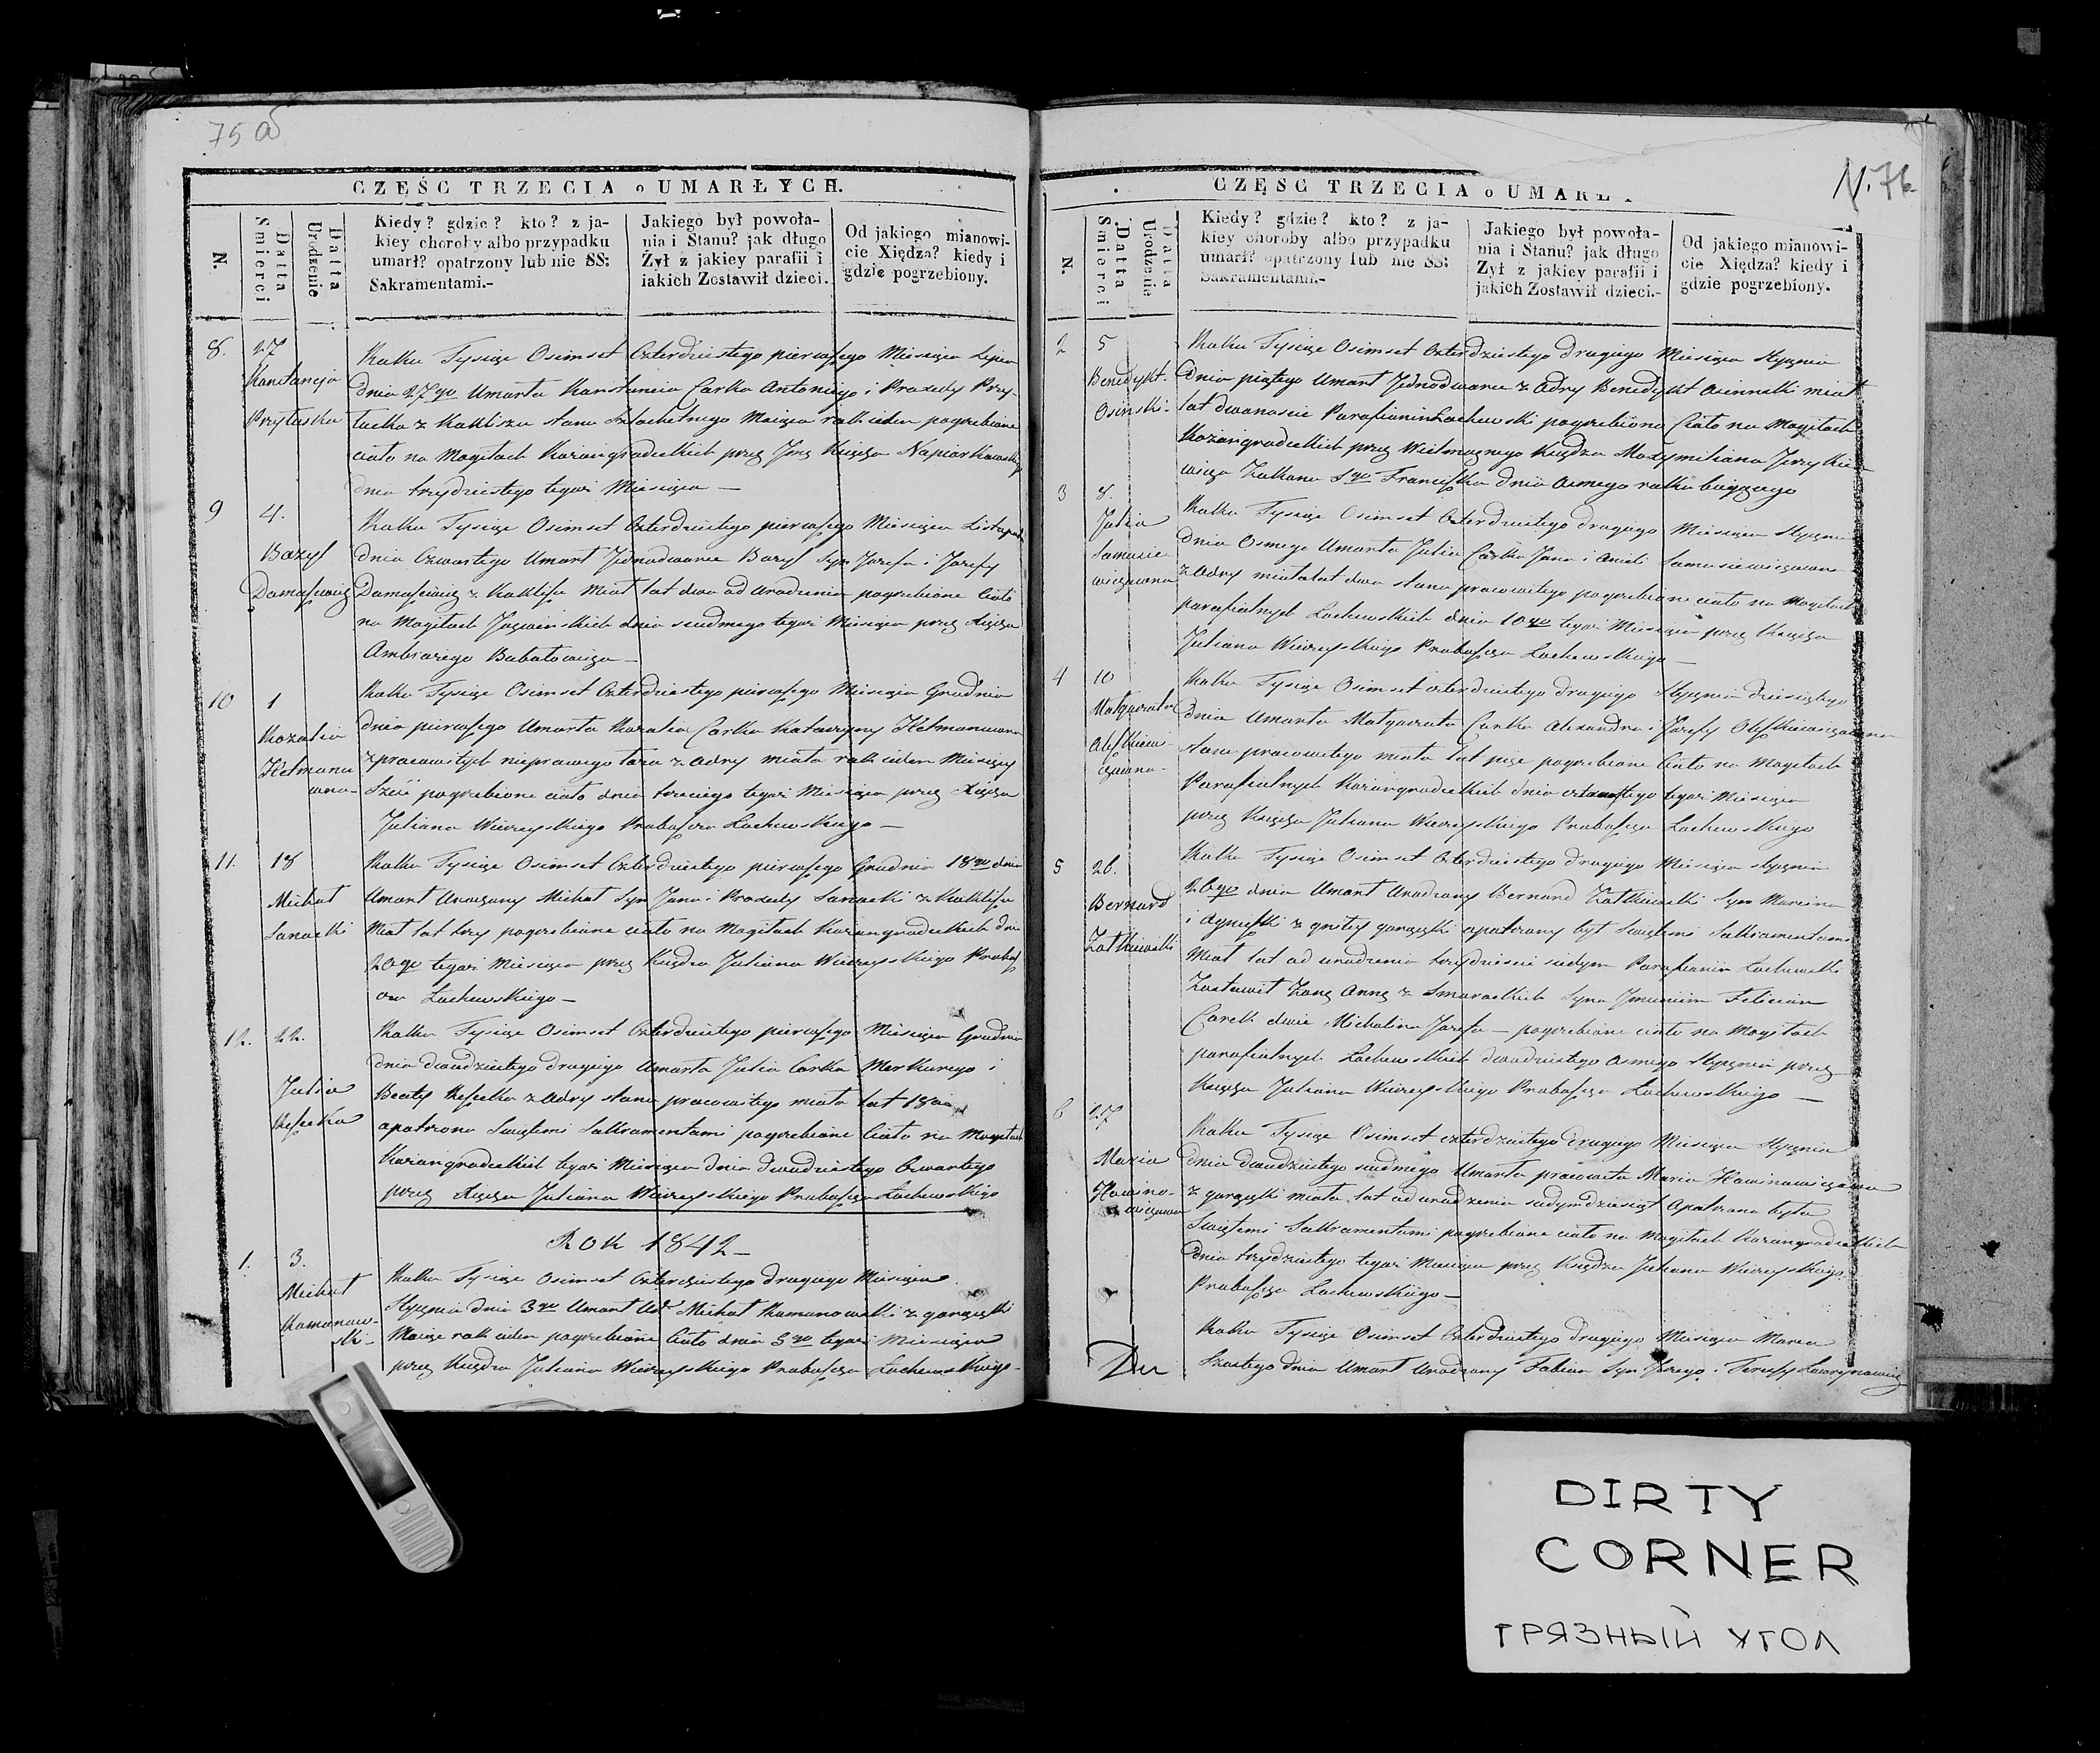 75 об
CZĘŚC TRZECIA o UMARŁYCH.
N.
Datta Smierci
Datta Urodzenie
Kiedy? gdzie? kto? z ja-
kiey choroby albo przypadku
umarł? opatrzony lub nie SS:
Sakramentami.-
Jakiego był powoła-
nia i Stanu? jak długo
Żył z jakiey parafii i
iakich Zostawił dzieci.
Od jakiego mianowi-
cie Xiędza? kiedy i
gdzie pogrzebiony.
8. 27
Konstancja
Przytuska
Roku Tysiąc Osimset Czterdziestego pierwszego Miesiąca Lipca
dnia 27go Umarła Konstancia Corka Antoniego i Praxedy Przy-
Stanu Szlachetnego Maiąca rok ieden pogrzebione
ciało na Mogiłach Kożangrodeckich przez Xiędza
dnia trzydziestego tegoż Miesiąca —
9 4.
Bazyl
Roku Tysiąc Osimset Czterdziestego pierwszego Miesiąca Listopad
dnia Czwartego Umarł Jednodworzec Bazyl Syn Jozefa i Jozefy
Miał lat dwa od urodzenia pogrzebione Ciało
na Mogiłach dnia siudmego tegoż Miesiąca przez Xiędza
Ambrożego
10 1
Rozalia
Roku Tysiąc Osimset Czterdziestego pierwszego Miesiąca Grudnia
dnia pierwszego Umarła Rozalia Corka Katarzyny
z pracowitych nieprawego łoża z Odry miała rok ieden Miesięcy
Sześć pogrzebione ciało dnia trzeciego tegoż Miesiąca przez Xiędza
Juliana Wierzyskiego Probosza Łachewskiego —
11. 18
Michał
Sanacki
Roku Tysiąc Osimset Czterdziestego pierwszego Grudnia 18go dnia
Umarł Urodzony Michał Syn Jana i Praxedy Sanacki
Miał lat trzy pogrzebione ciało na Mogiłach Kożangrodeckich dnia
20go tegoż Miesiąca przez Księdza Juliana Wierzyskiego Probosz
cza Łachewskiego —
12. 22.
Julia
Roku Tysiąc Osimset Czterdziestego pierwszego Miesiąca Grudnia
dnia dwudziestego drugiego Umarła Julia Corka Merkurego i
Beaty z Odry stanu pracowitego miała lat
opatrzona Swiętemi Sakramentami pogrzebione Ciało na Mogiłach
Kożangrodeckich tegoż Miesiąca dnia dwudziestego Czwartego
przez Xiędza Juliana Wierzyskiego Probosza Łachewskiego
Rok 1842 —
1. 3.
Michał
Komonow-
ski-
Roku Tysiąc Osimset Czterdziestego drugiego Miesiąca
Stycznia dnia 3go Umarł Michał Komonowski
Maiąc rok ieden pogrzebione Ciało dnia 5go tegoż Miesiąca
przez Księdza Juliana Wierzyskiego Probosza Łachewskiego-
N. 76
CZĘSC TRZECIA o UMARŁ
N.
Datta Smierci
Datta Urodzenie
Kiedy? gdzie? kto? z ja-
kiey choroby albo przypadku
umarł? opatrzony lub nie SS:
Sakramentami.-
Jakiego był powoła-
nia i Stanu? jak długo
Zył z jakiey parafii i
jakich Zostawił dzieci.-
Od jakiego mianowi-
cie Xiędza? kiedy i
gdzie pogrzebiony.
2 5
Benedykt.
Osinski-
Roku Tysiąc Osimset Czterdziestego drugiego Miesiąca Stycznia
Dnia piątego Umarł Jednodworzec z Odry Benedykt Osinnski miał
lat dwanascie Parafianin Łachewski pogrzebiono Ciało na Mogiłach
Kożangrodeckich przez Wielmożnego Księdza Maxymiliana
Zakonu Sgo Franciszka dnia osmego roku bieżącego
3 8.
Julia
Samusie-
wiczowna
Roku Tysiąc Osimset Czterdziestego drugiego Miesiąca Stycznia
dnia Osmego Umarła Julia Corka Jana i Anieli Samusiewiczowna
z Odry miała lat dwa stanu pracowitego pogrzebione ciało na Mogiłach
parafialnych Łachewskich dnia 10go tegoż Miesiąca przez Księdza
Juliana Wierzyskiego Probosza Łachewskiego —
4 10
Małgorzata
Roku Tysiąc Osimset czterdziestego drugiego Stycznia dziesiątego
dnia Umarła Małgorzata Corka Alexandra i Jozefy
stanu pracowitego miała lat pięc pogrzebione Ciało na Mogiłach
Parafialnych Kożangrodeckich dnia tegoż Miesiąca
przez Księdza Juliana Wierzyskiego Probosza Łachewskiego
5 26.
Bernard
Żołkiewski
Roku Tysiąc Osimset Czterdziestego drugiego Miesiąca Stycznia
26go dnia Umarł Urodzony Bernard Żołkiewski Syn Marcina
i Agnieszki opatrzony był Swiętemi Sakramentami
Miał lat od urodzenia trzydziescie siedym Parafianin Łachewski
Zostawił Żonę Annę z Syna Felician
Corek dwie Michalina Jozefa — pogrzebione ciało na Mogiłach
parafialnych Łachewskich dwudziestego Osmego Stycznia przez
Księdza Juliana Wierzyskiego Probosza Łachewskiego —
6 27
Maria
Roku Tysiąc Osimset czterdziestego drugiego Miesiąca Stycznia
dnia dwudziestego siudmego Umarła pracowita Maria
miała lat od urodzenia siedymdziesiąt Opatrzona była
Swiętemi Sakramentami pogrzebione ciało na Mogiłach Kożangrodeckich
Dnia trzydziestego tegoż Miesiąca przez Księdza Juliana Wierzyskiego
Probosza Łachewskiego —
Roku Tysiąc Osimset Czterdziestego drugiego Miesiąca Marca
Szostego dnia Umarł Urodzony Fabian Syn Jerzego i Teressy
DIRTY
CORNER
ГРЯЗНЫЙ УГОЛ